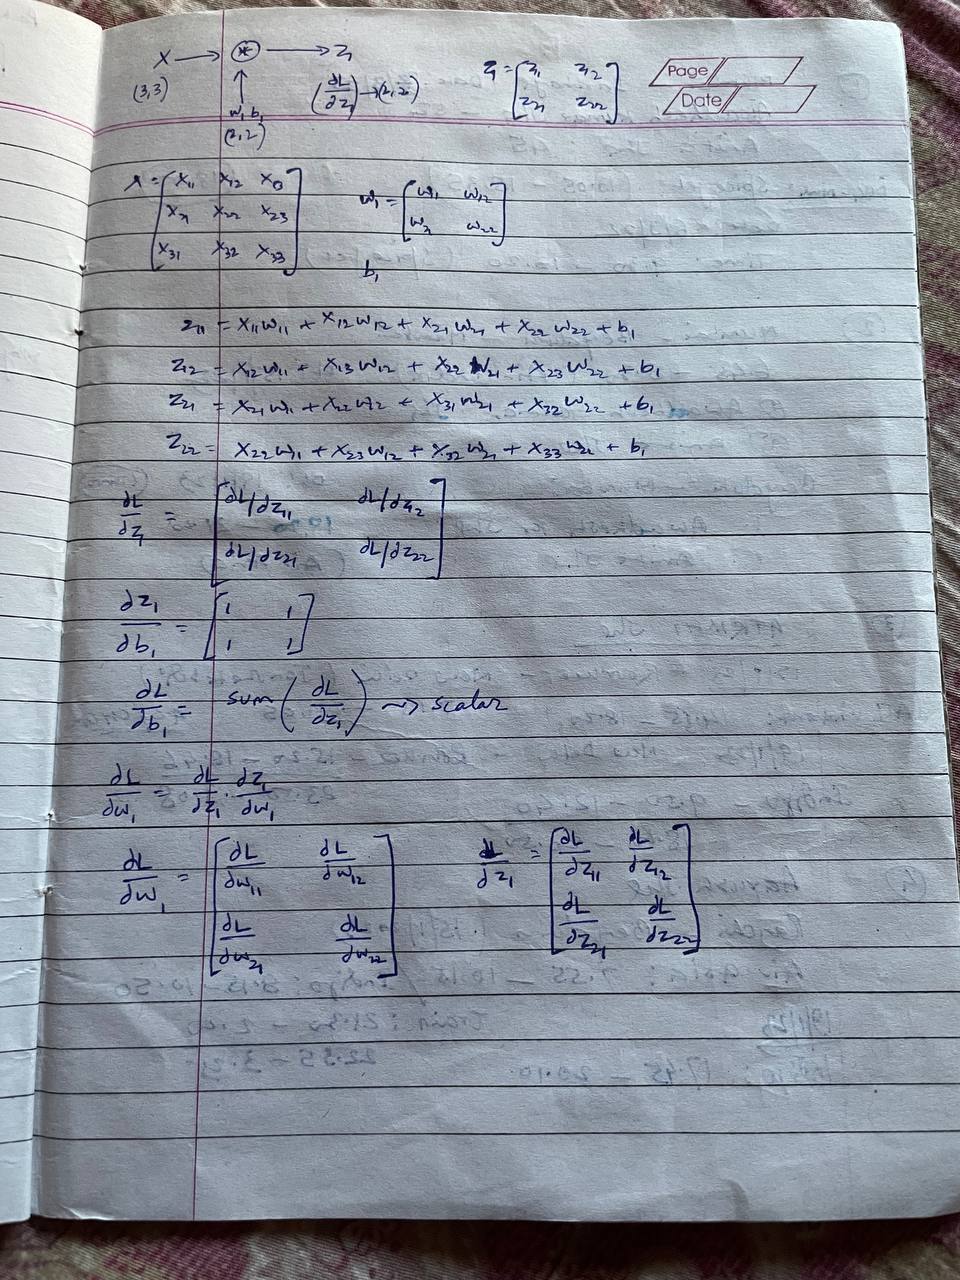 X → ⊛ → Z₁
(3,3)
w₁ b₁
(2,2)
(∂L/∂z₁) → (2,2)
Z₁ = [z₁₁ z₁₂
z₂₁ z₂₂]
Page
Date
X = [x₁₁ x₁₂ x₁₃
x₂₁ x₂₂ x₂₃
x₃₁ x₃₂ x₃₃]
w₁ = [w₁₁ w₁₂
w₂₁ w₂₂]
b₁
z₁₁ = x₁₁w₁₁ + x₁₂w₁₂ + x₂₁w₂₁ + x₂₂w₂₂ + b₁
z₁₂ = x₁₂w₁₁ + x₁₃w₁₂ + x₂₂w₂₁ + x₂₃w₂₂ + b₁
z₂₁ = x₂₁w₁₁ + x₂₂w₁₂ + x₃₁w₂₁ + x₃₂w₂₂ + b₁
z₂₂ = x₂₂w₁₁ + x₂₃w₁₂ + x₃₂w₂₁ + x₃₃w₂₂ + b₁
∂L/∂z₁ = [∂L/∂z₁₁ ∂L/∂z₁₂
∂L/∂z₂₁ ∂L/∂z₂₂]
∂z₁/∂b₁ = [1 1
1 1]
∂L/∂b₁ = sum(∂L/∂z₁) ⇝ scalar
∂L/∂w₁ = ∂L/∂z₁ · ∂z₁/∂w₁
∂L/∂w₁ = [∂L/∂w₁₁ ∂L/∂w₁₂
∂L/∂w₂₁ ∂L/∂w₂₂]
∂L/∂z₁ = [∂L/∂z₁₁ ∂L/∂z₁₂
∂L/∂z₂₁ ∂L/∂z₂₂]